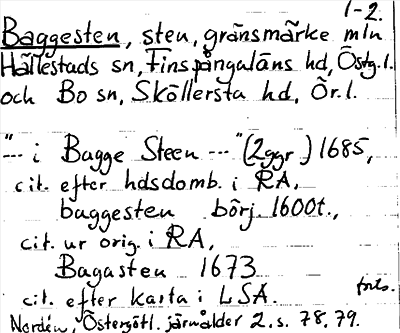 1-2.
Baggesten, sten, gränsmärke mln
Hällestads sn, Finspångaläns hd, Östg.l.
och Bo sn, Sköllersta hd, Ör.l.
"--- i Bagge Steen ---" (2ggr) 1685,
cit. efter hdsdomb. i RA.
baggesten börj. 1600t.,
cit. ur orig. i RA,
Bagasten 1673
cit. efter karta i LSA. forts.
Nordén, Östergötl. järnålder 2. s. 78, 79.